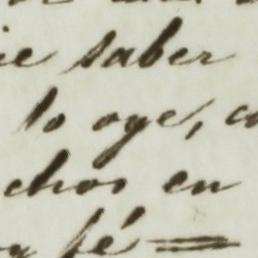 saber
lo oye,
chos en
fé